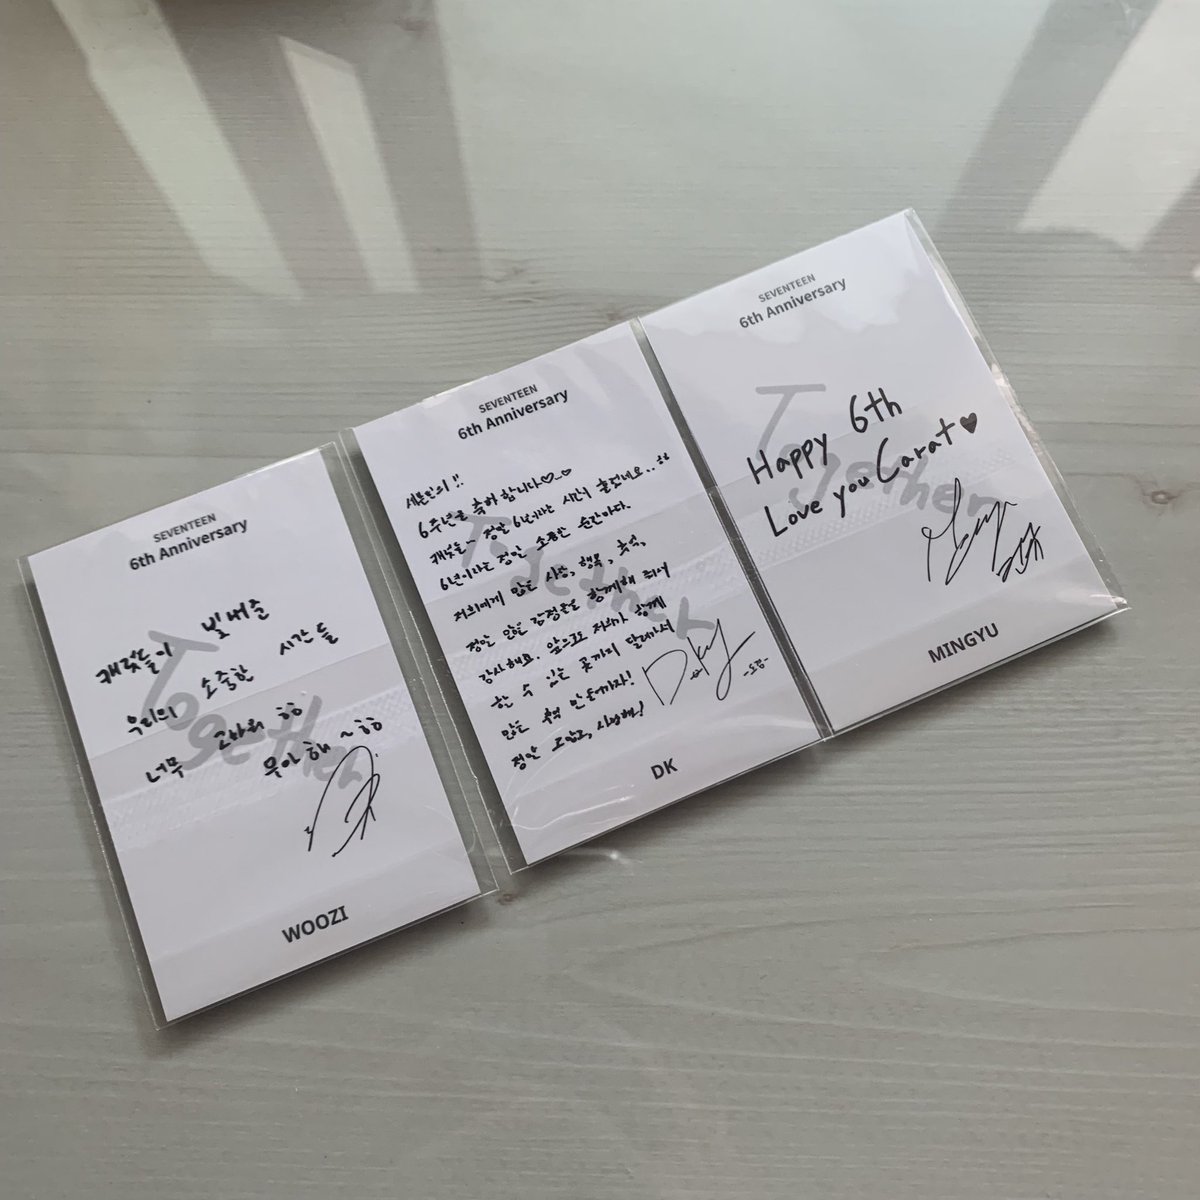 SEVENTEEN
6th Anniversary
Together
캐럿들이 빛내준
우리의 소중한 시간들
너무 고마워 ㅎㅎ
뭉아해~ㅎㅎ
WOOZI
SEVENTEEN
6th Anniversary
Together
세븐틴의!!
6주년을 축하합니다♡_♡
캐럿들~ 정말 6년이라는 시간이 흘렀네요..ㅎㅎ
6년이라는 정말 소중한 순간이다.
저희에게 많은 사랑, 행복, 추억,
정말 많은 감정들을 함께해 줘서
감사해요. 앞으로 저희가 함께
할 수 있는 끝까지 달려가서
많은 추억 만들까자!
정말 고맙고, 사랑해!
DK
-도겸-
DK
SEVENTEEN
6th Anniversary
Together
Happy 6th
Love you Carat♥
MINGYU